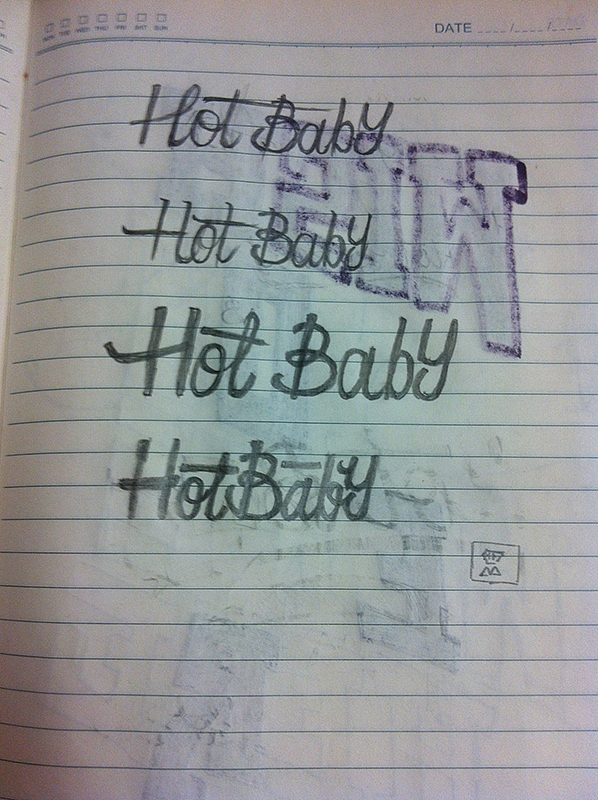 MON TUE WED THU FRI SAT SUN
DATE ___/___/___
Hot Baby
Hot Baby
Hot Baby
Hot Baby